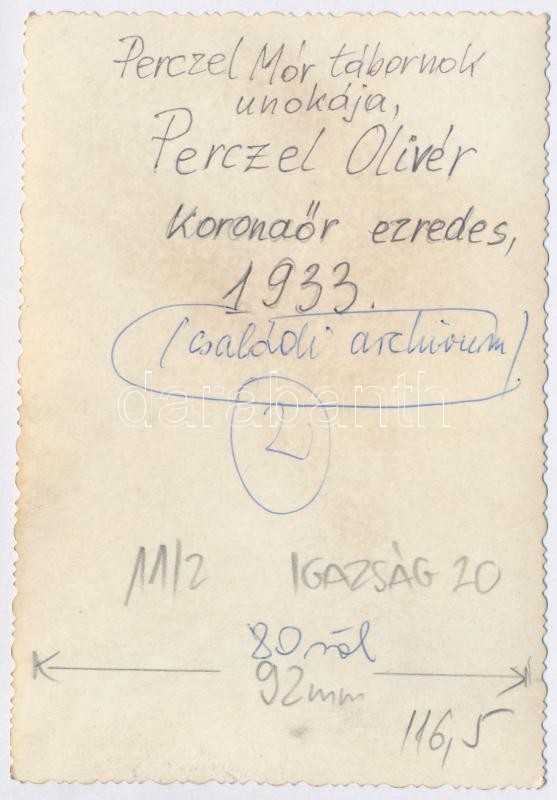 Perczel Mór tábornok
unokája,
Perczel Olivér
Koronaőr ezredes,
1933.
(családi archivum)
darabanth
2
11/2 IGAZSÁG 20
80 ról
92mm
116,5